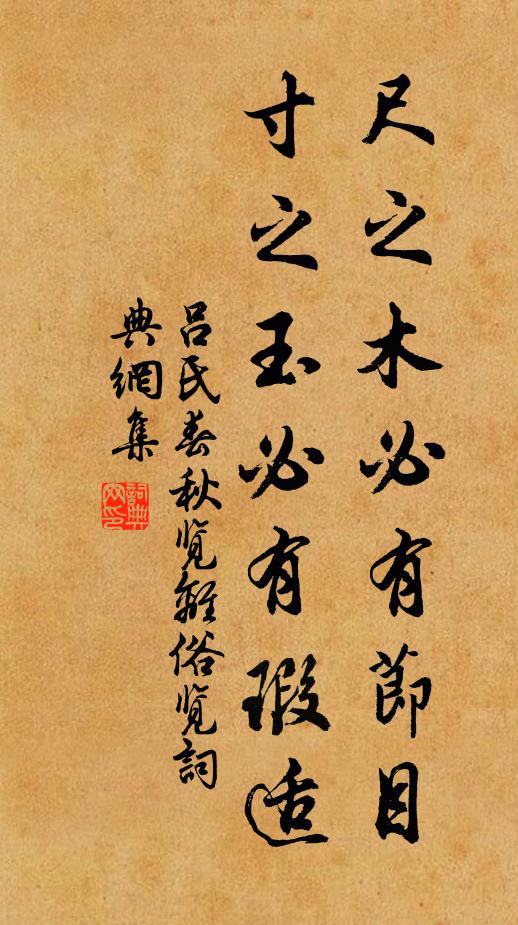 尺之木必有節目
寸之玉必有瑕适
呂氏春秋覽離俗覽詞
典網集
詞典
网印